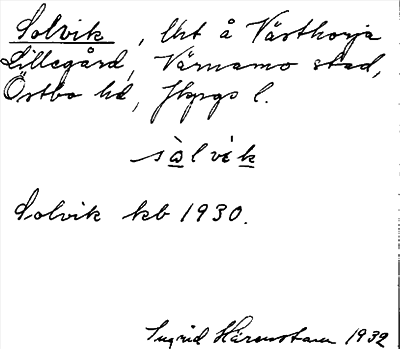 Solvik, lht å Västhorja
Lillegård, Värnamo stad,
Östbo hd, Jkpgs l.
sòlvik
Solvik kb 1930.
Ingrid Härenstam 1932